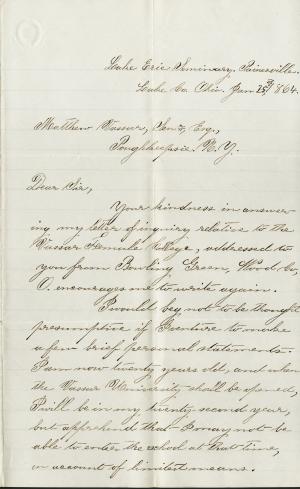 Lake Erie Seminary, Painesville,
Lake Co. Ohio, Jan. 25th, 1864.
Matthew Vassar, Sen., Esq.,
Poughkeepsie. N. Y.
Dear Sir,
Your kindness in answer-
ing my letter of inquiry relative to the
Vassar Female College, addressed to
you from Bowling Green, Wood Co,
O. encourages me to write again.
I would beg not to be thought
presumptive if I venture to make
a few brief personal statements.
I am now twenty years old, and when
the Vassar University shall be opened,
I will be in my twenty second year,
but apprehend that I may not be
able to enter the school at that time,
on account of limited means.